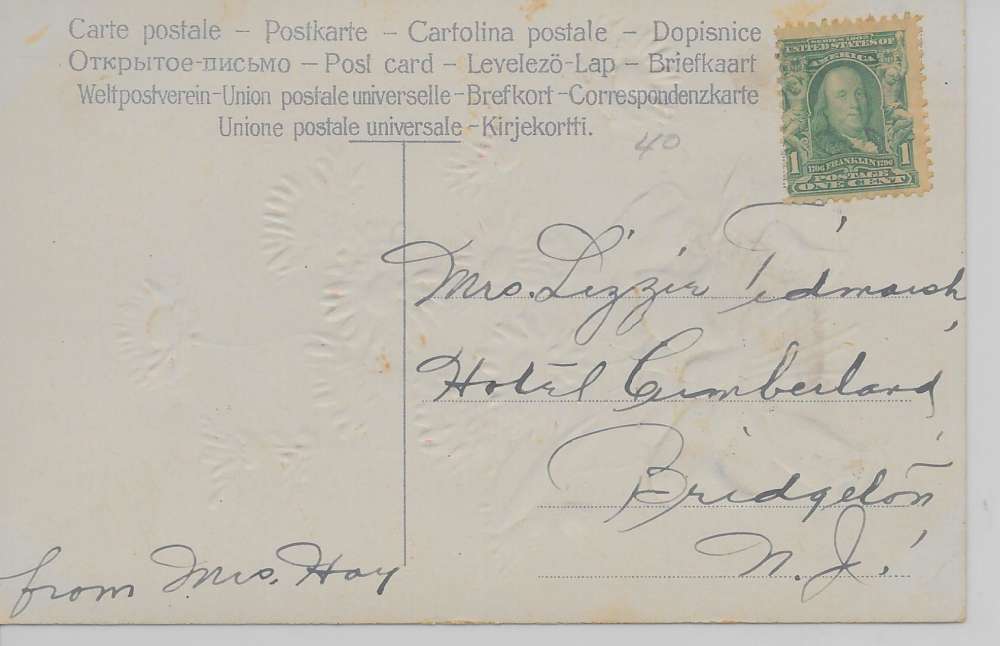 Carte postale – Postkarte – Cartolina postale – Dopisnice
Открытое-письмо – Post card – Levelezö-Lap – Briefkaart
Weltpostverein-Union postale universelle-Brefkort-Correspondenzkarte
Unione postale universale-Kirjekortti.
40
SERIES 1902
UNITED STATES OF
AMERICA
1706 FRANKLIN 1790
1 1
POSTAGE
ONE CENT
Mrs. Lizzie Tidmarsh
Hotel Cumberland,
Bridgeton
N. J.
from Mrs. Hay